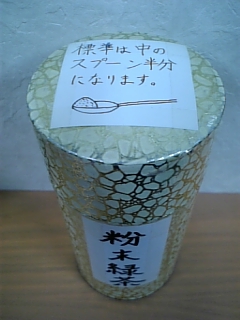 標準は中の
スプーン半分
になります。
粉末緑茶